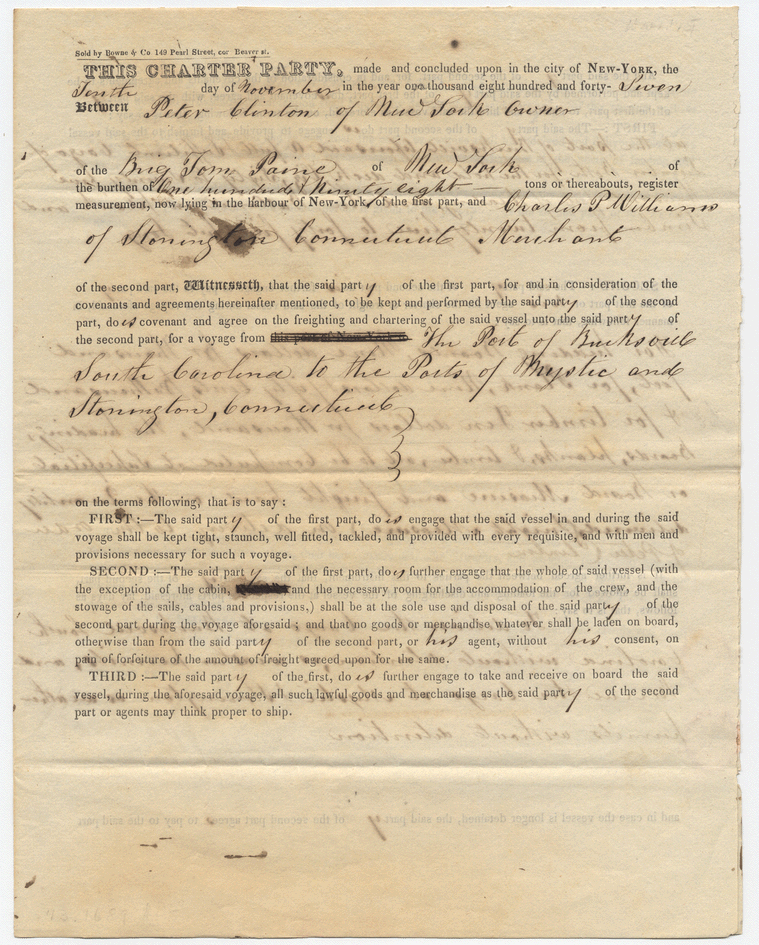 Sold by Bowne & Co. 149 Pearl Street, cor Beaver st.
THIS CHARTER PARTY, made and concluded upon in the city of NEW-YORK, the
Tenth day of November in the year one thousand eight hundred and forty- Seven
Between Peter Clinton of New York Owner
of the Brig Tom Paine of New York of
the burthen of One hundred & Ninety eight — tons or thereabouts, register
measurement, now lying in the harbour of New-York, of the first part, and Charles P Williams
of Stonington Connecticut Merchant
of the second part, Witnesseth, that the said party of the first part, for and in consideration of the
covenants and agreements hereinafter mentioned, to be kept and performed by the said party of the second
part, does covenant and agree on the freighting and chartering of the said vessel unto the said party of
the second part, for a voyage from this port of New-York to The Port of Bucksville
South Carolina to the Ports of Mystic and
Stonington, Connecticut
on the terms following, that is to say:
FIRST:—The said party of the first part, does engage that the said vessel in and during the said
voyage shall be kept tight, staunch, well fitted, tackled, and provided with every requisite, and with men and
provisions necessary for such a voyage.
SECOND:—The said party of the first part, does further engage that the whole of said vessel (with
the exception of the cabin, and the necessary room for the accommodation of the crew, and the
stowage of the sails, cables and provisions,) shall be at the sole use and disposal of the said party of the
second part during the voyage aforesaid; and that no goods or merchandise whatever shall be laden on board,
otherwise than from the said party of the second part, or his agent, without his consent, on
pain of forfeiture of the amount of freight agreed upon for the same.
THIRD:—The said party of the first, does further engage to take and receive on board the said
vessel, during the aforesaid voyage, all such lawful goods and merchandise as the said party of the second
part or agents may think proper to ship.